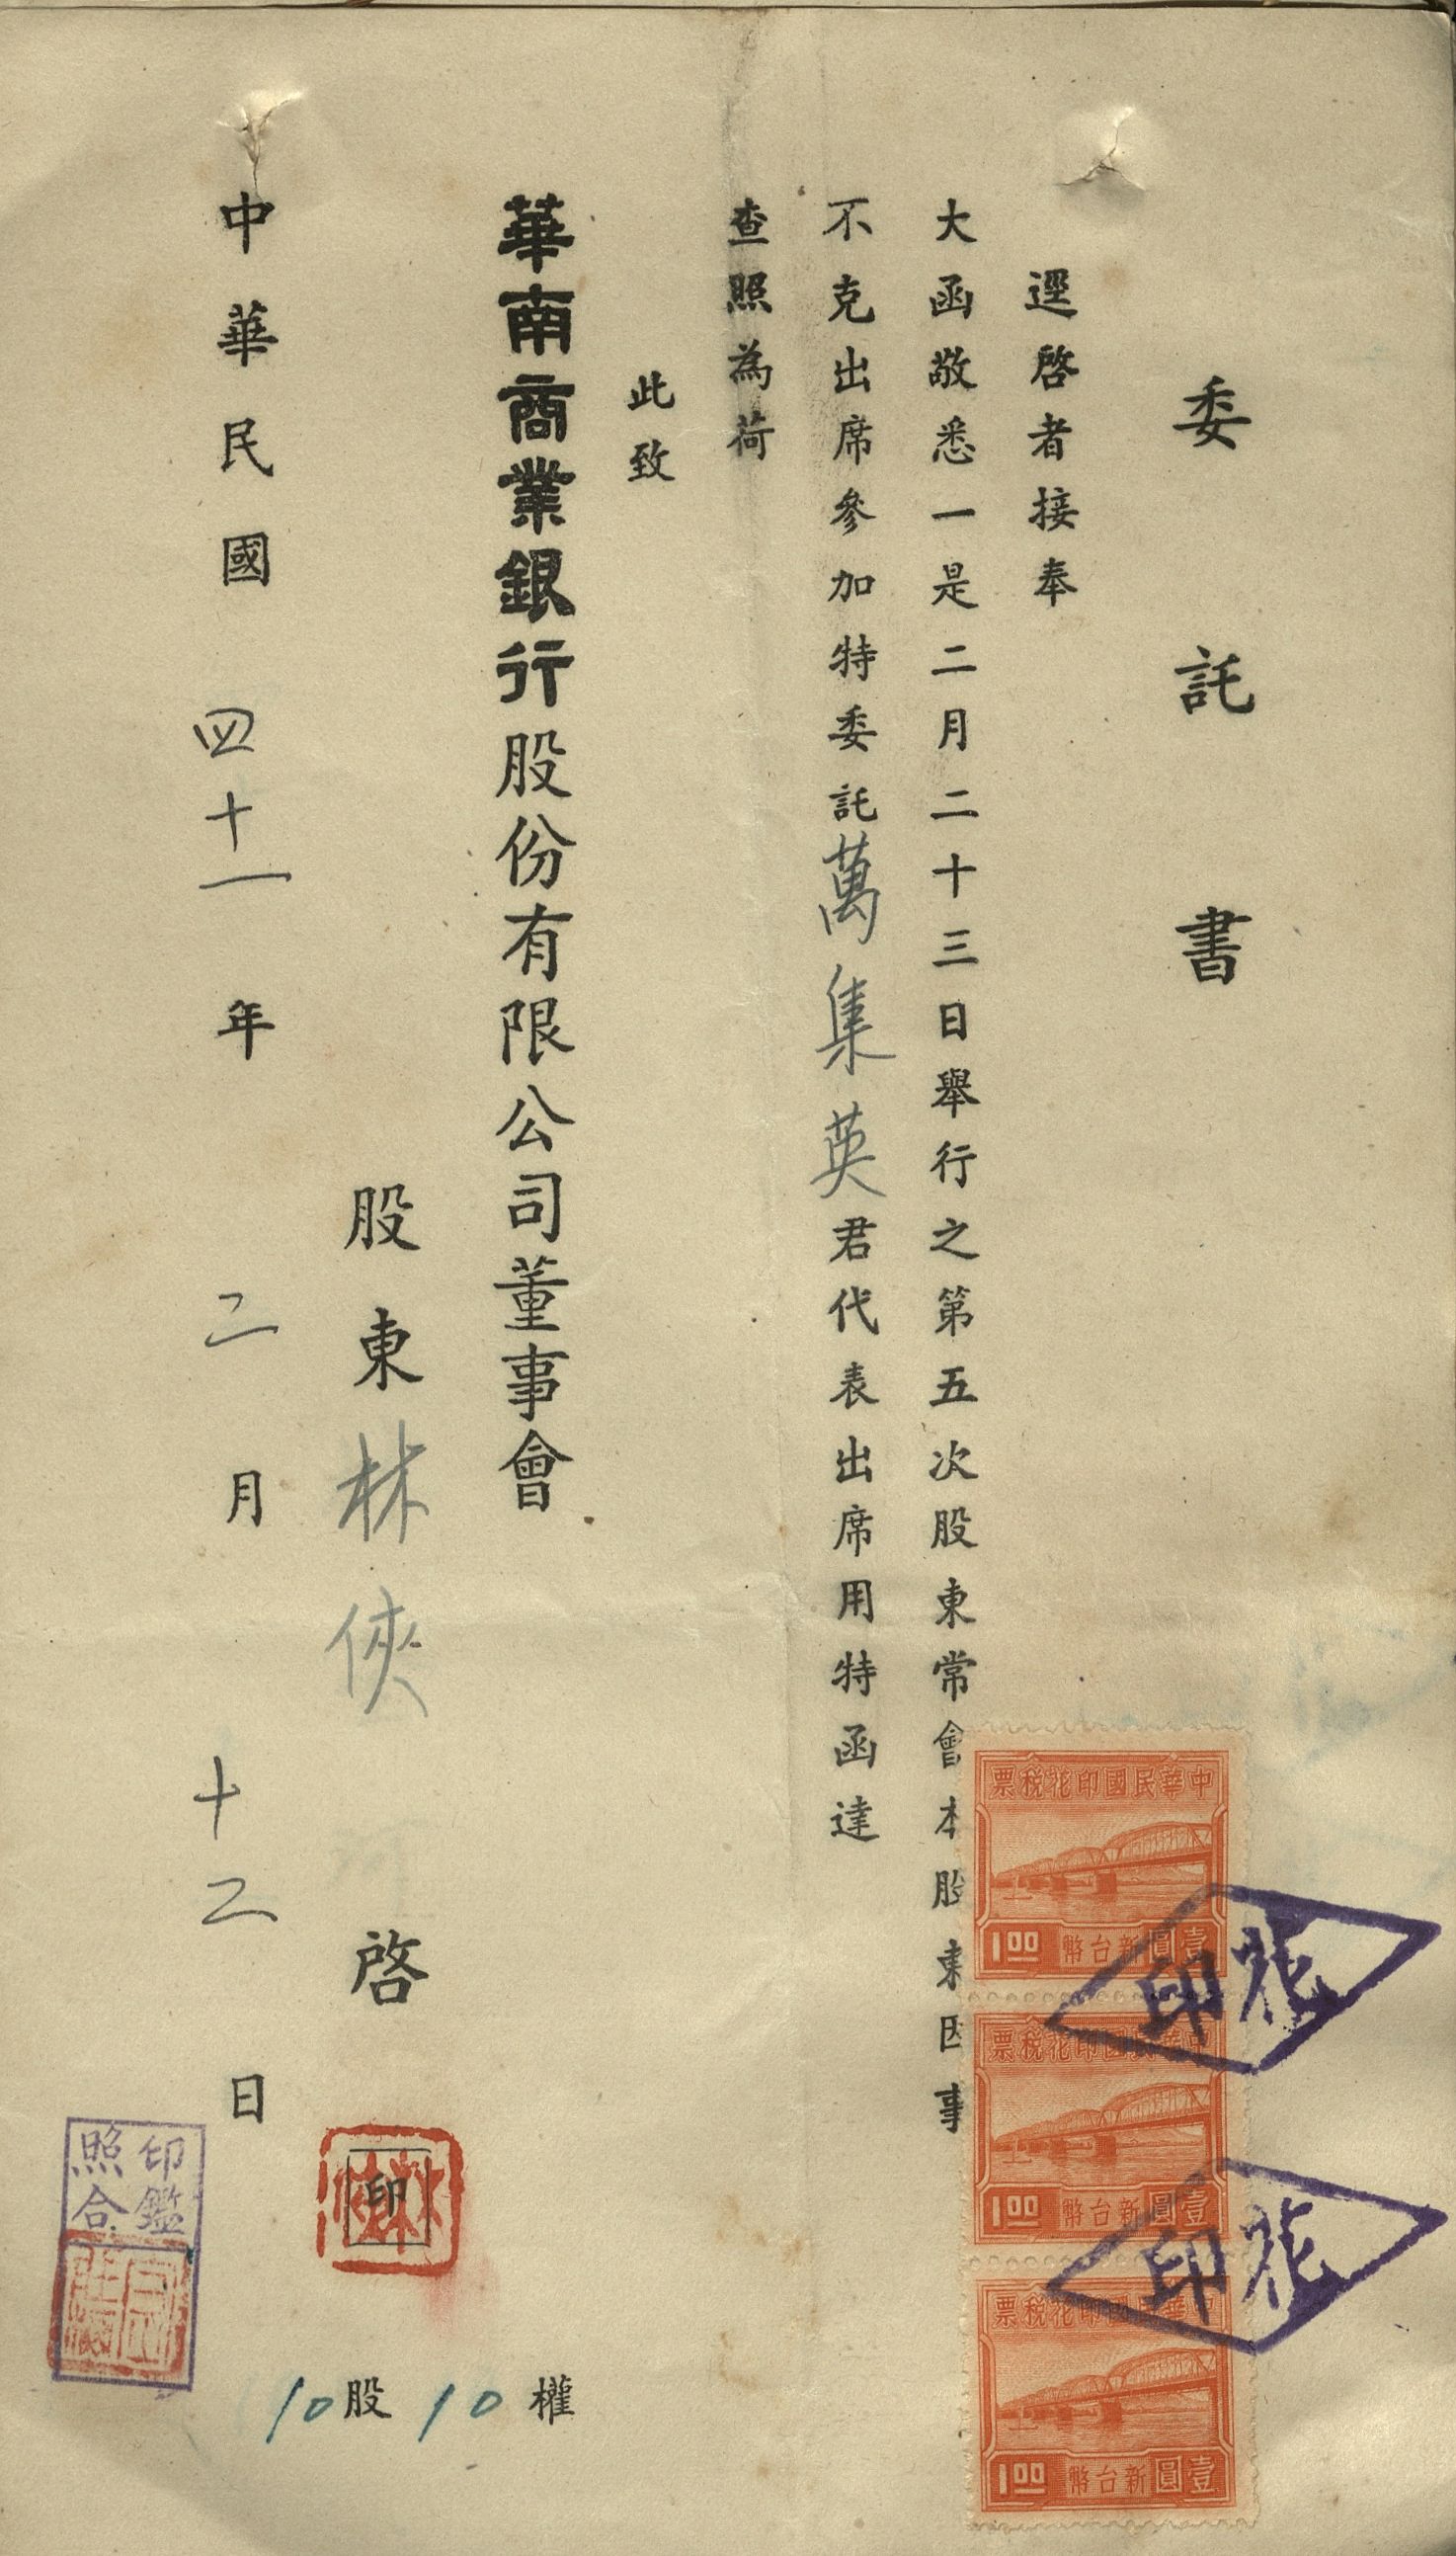 委託書
逕啓者接奉
大函敬悉一是二月二十三日舉行之第五次股東常會本股東因事
不克出席參加特委託萬集英君代表出席用特函達
查照為荷
此致
華南商業銀行股份有限公司董事會
股東林俠啓
印
中華民國四十一年二月十二日
10股10權
印鑑
照合
中華民國印花稅票
1.00
壹圓新台幣
花印
中華民國印花稅票
1.00
壹圓新台幣
花印
中華民國印花稅票
1.00
壹圓新台幣